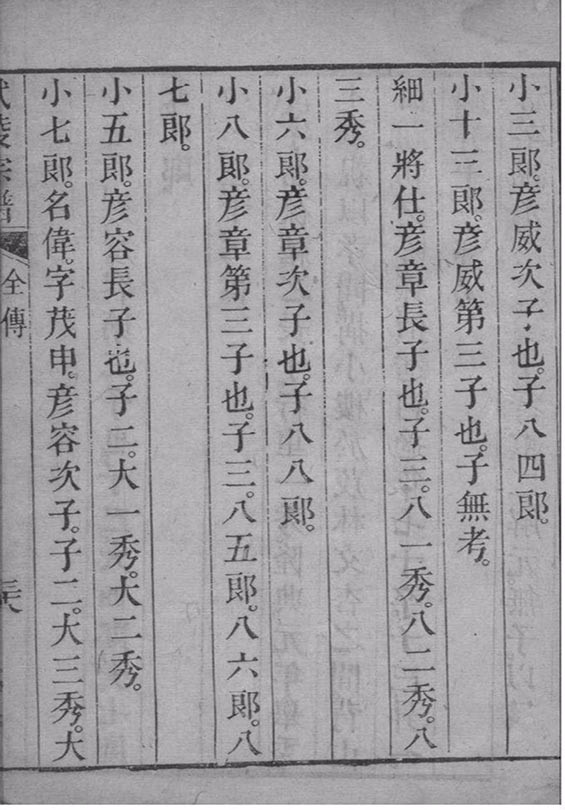 小三郎。彦威次子也。子八四郎。
小十三郎。彦威第三子也。子無考。
細一將仕。彦章長子也。子三。八一秀。八二秀。八
三秀。
小六郎。彦章次子也。子八八郎。
小八郎。彦章第三子也。子三。八五郎。八六郎。八
七郎。
小五郎。彦容長子也。子二。大一秀。大二秀。
小七郎。名偉。字茂申。彦容次子。子二。大三秀。大
宗譜
全傳